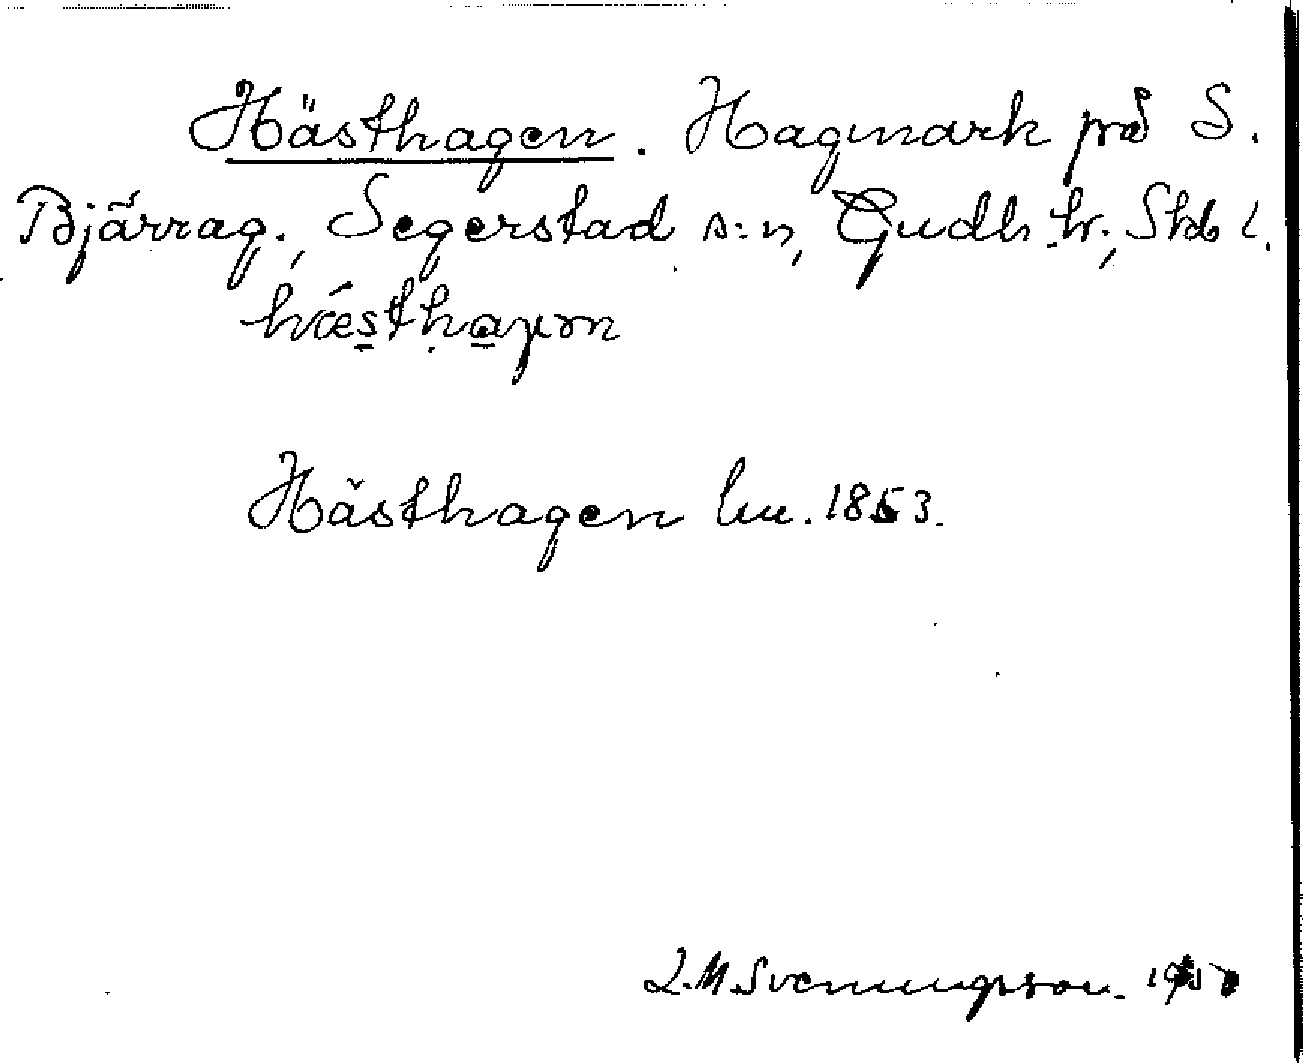 Hästhagen. Hagmark på S.
Bjärrag., Segerstad s:n, Gudh. hr., Skb l.
Hästhagen lm. 1853.
L.M. Svenungsson.